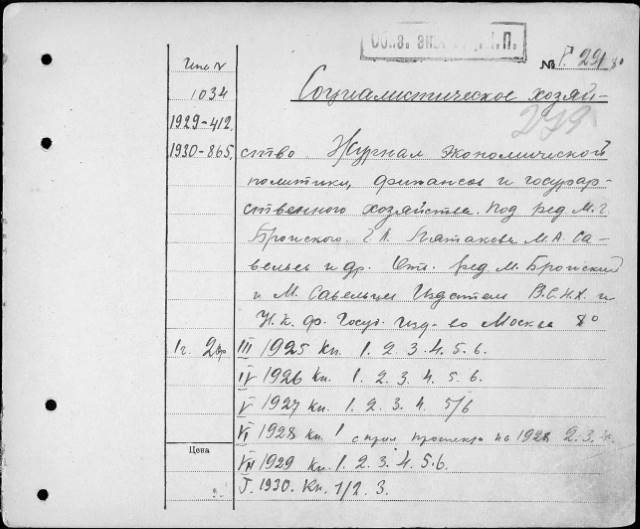 № Г. 291 8°
Инв №
1034
1929-412
1930-865
Социалистическое хозяй-
279
ство. Журнал экономической
политики, финансов и государ-
ственного хозяйства. Под ред М. Г.
Бронского. Г. Л. Пятакова М. А. Са-
вельев и др. Отв. ред М. Бронский
и М. Савельев Издатели В.С.Н.Х. и
Н. К. Ф. Госуд. Изд-во Москва 8°
1 г. 2
III 1925 Кн. 1. 2. 3. 4. 5. 6.
IV 1926 Кн. 1. 2. 3. 4. 5. 6.
V 1927 Кн. 1. 2. 3. 4. 5/6
VI 1928 Кн. 1 с прил на 1928 2. 3. 4.
Цена
VII 1929 Кн. 1. 2. 3. 4. 5. 6.
1930. Кн. 1/2. 3.